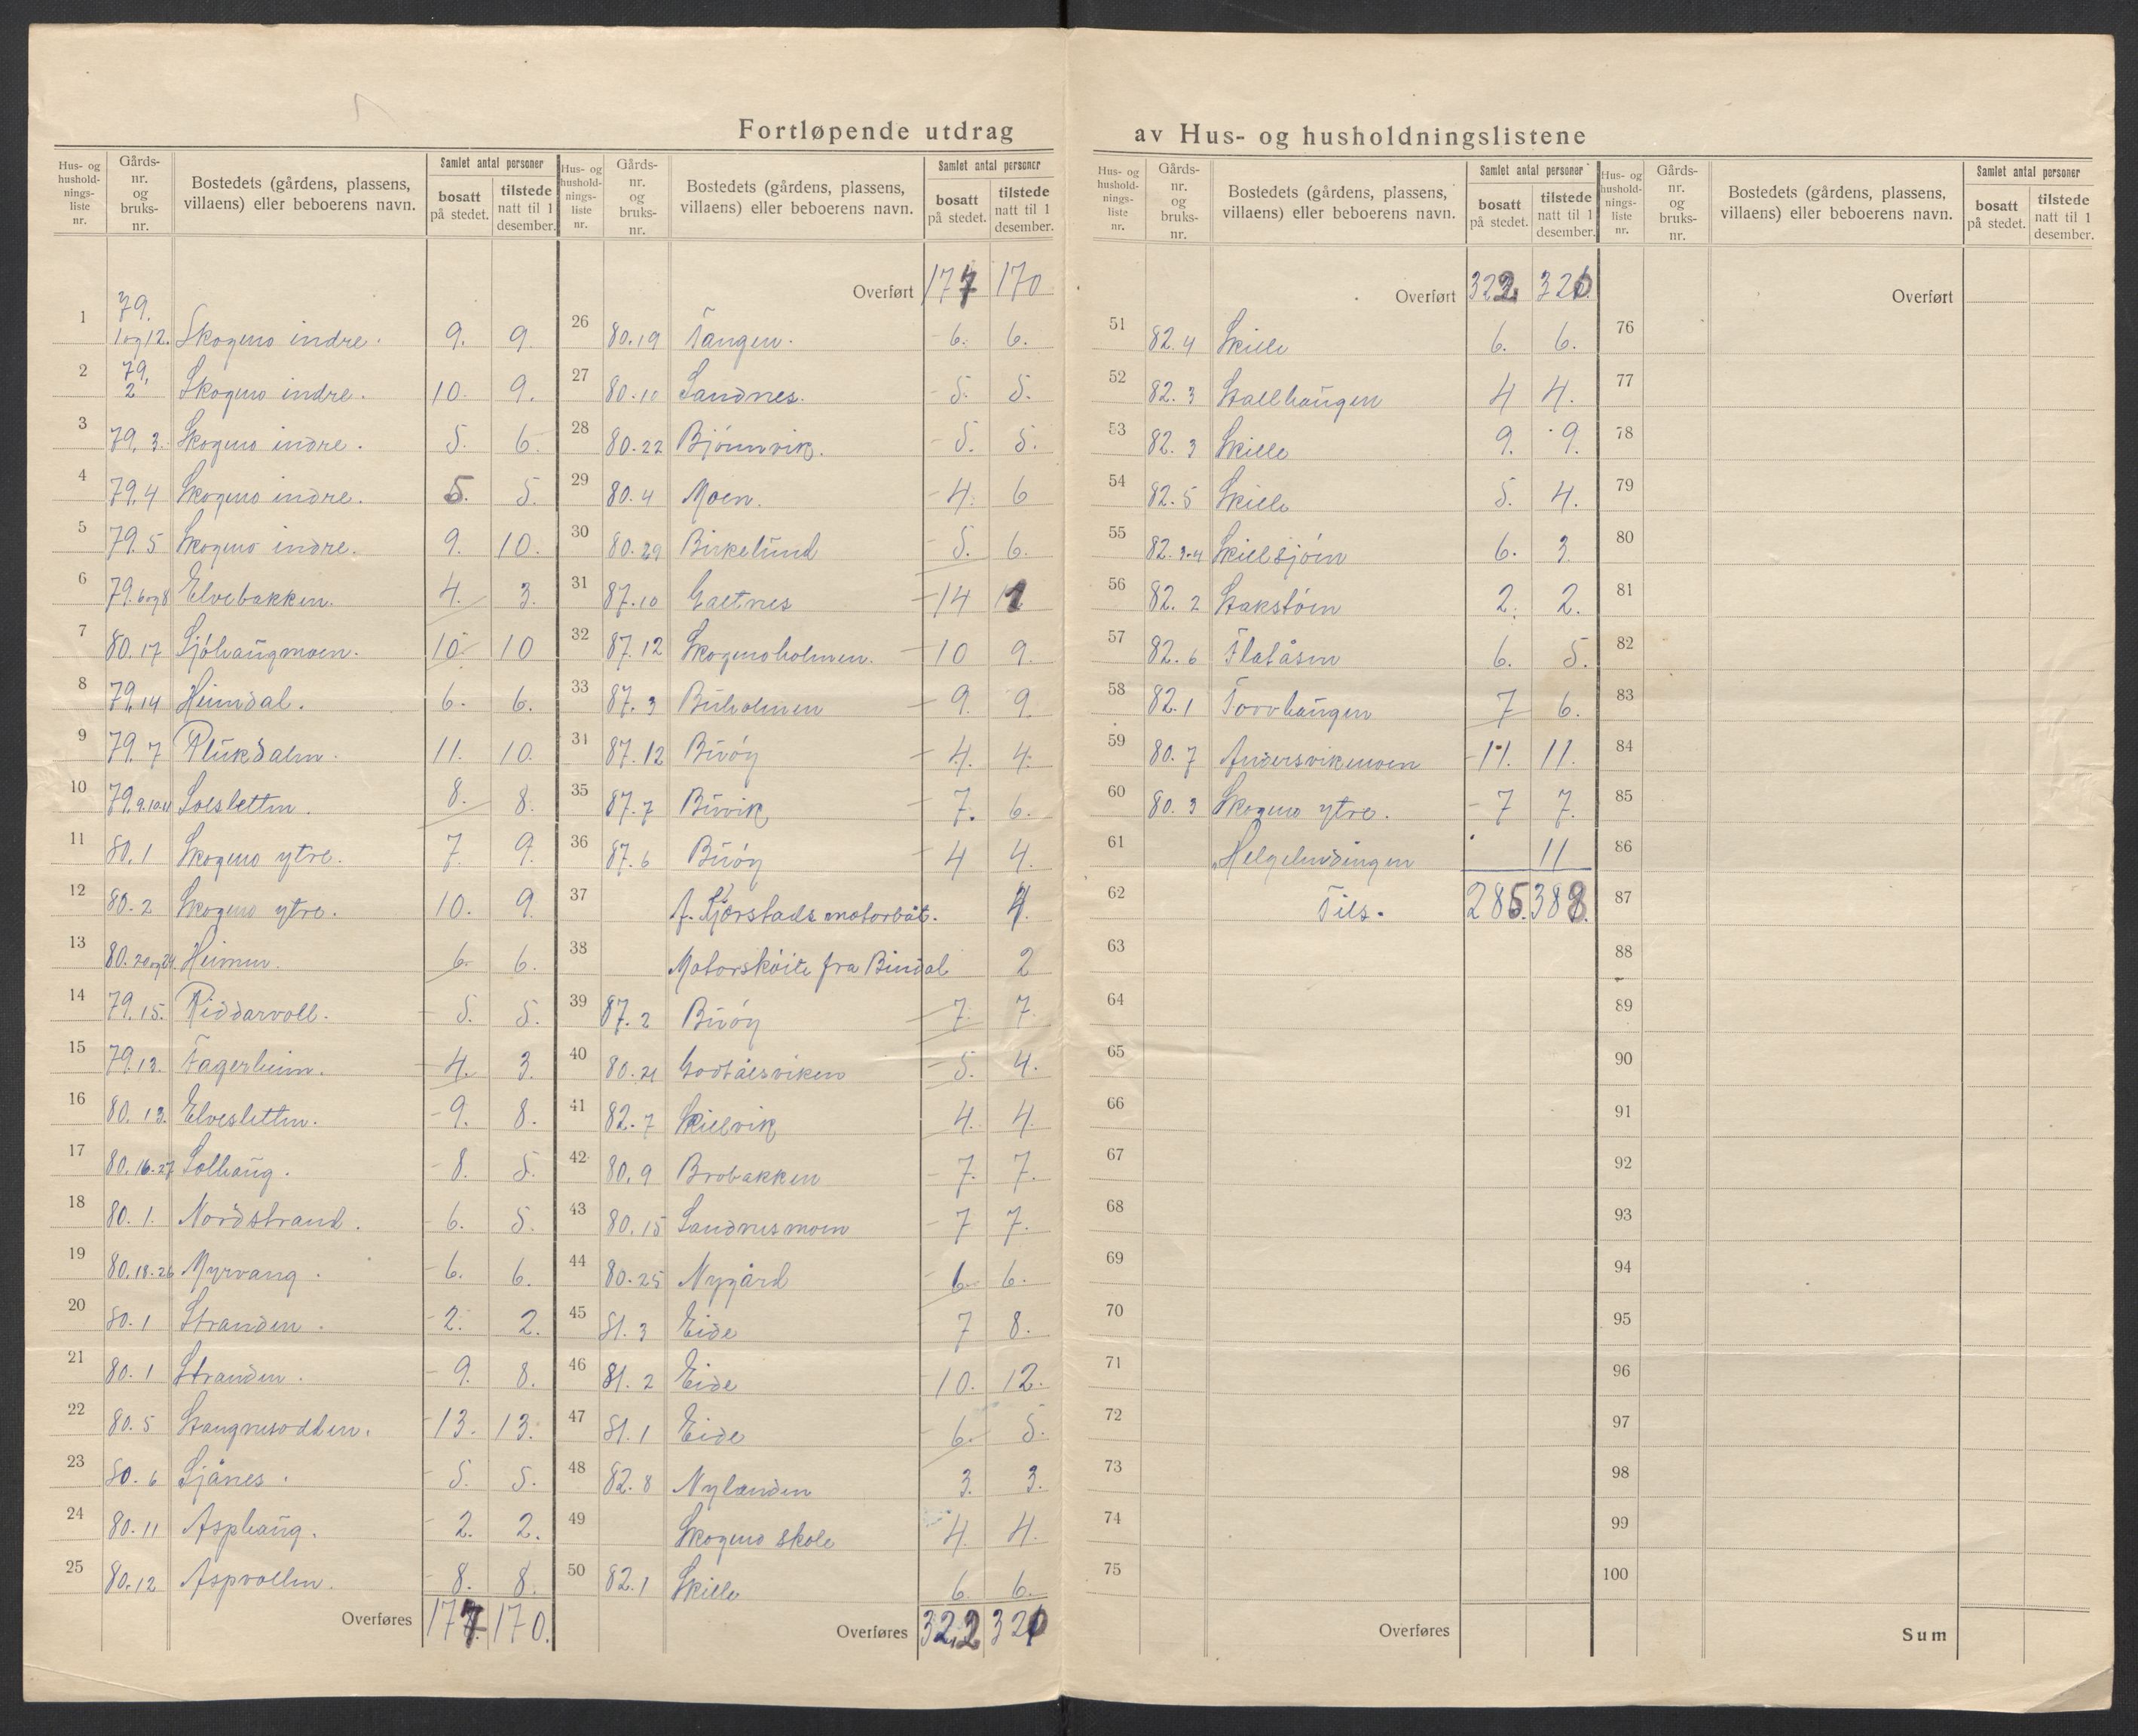 Fortløpende utdrag av Hus- og husholdningslistene
Hus- og hushold-nings-liste nr. Gårds-nr. og bruks-nr. Bostedets (gårdens, plassens, villaens) eller beboerens navn. Samlet antal personer bosatt på stedet. tilstede natt til 1 desember.
1 79. 1og12. Skogmo indre. 9. 9.
2 79. 2 Skogmo indre. 10. 9.
3 79. 3. Skogmo indre. 5. 6.
4 79.4 Skogmo indre. 5. 5.
5 79.5 Skogmo indre. 9. 10.
6 79.6og8 Elvebakken. 4. 3.
7 80.17 Sjöhaugmoen. 10 10
8 79.14 Heimdal. 6. 6.
9 79.7 Plukdalen. 11. 10.
10 79.9.10.11 Solsletten. 8. 8.
11 80.1 Skogmo ytre. 7. 9.
12 80.2 Skogmo ytre. 10. 9.
13 80.20og24 Heimen. 6. 6.
14 79.15. Riddarvoll. 5. 5.
15 79.13. Fagerheim. 4. 3.
16 80.13. Elvesletten. 9. 8.
17 80.16-27 Solhaug. 8. 5.
18 80.1. Nordstrand. 6. 5.
19 80.18-26 Myrvang. 6. 6.
20 80.1 Stranden. 2. 2.
21 80.1 Stranden. 9. 8.
22 80.5 Stangnesodden. 13. 13.
23 80.6 Sjånes. 5. 5.
24 80.11 Asphaug. 2. 2.
25 80.12 Aspvollen. 8. 8.
Overføres 177. 170.
Hus- og hushold-nings-liste nr. Gårds-nr. og bruks-nr. Bostedets (gårdens, plassens, villaens) eller beboerens navn. Samlet antal personer bosatt på stedet. tilstede natt til 1 desember.
Overført 177 170
26 80.19 Tangen. 6. 6.
27 80.10 Sandnes. 5. 5.
28 80.22 Bjönnvik. 5. 5.
29 80.4 Moen. 4. 6
30 80.29 Birkelund 5. 6.
31 87.10 Galtnes 14
32 87.12 Skogmoholmen. 10 9.
33 87.3 Buholmen 9. 9.
34 87.12 Buöy 4. 4.
35 87.7 Buvik 7. 6.
36 87.6 Buöy 4 4.
37 A. Sjørstads motorbåt. 4.
38 Motorsköite fra Bindal 2
39 87.2 Buöy 7. 7.
40 80.21 Godtalsviken 5. 4.
41 82.7 Skillvik 4. 4.
42 80.9 Brobakken 7. 7.
43 80.15 Sandnesmoen 7 7.
44 80.25 Nygård 6. 6.
45 81.3 Eide 7 8.
46 81.2 Eide 10. 12.
47 81.1 Eide 6. 5.
48 82.8 Nylanden 3. 3.
49 Skogmo skole 4. 4.
50 82.1 Skille 6. 6.
Overføres 322 320
Hus- og hushold-nings-liste nr. Gårds-nr. og bruks-nr. Bostedets (gårdens, plassens, villaens) eller beboerens navn. Samlet antal personer bosatt på stedet. tilstede natt til 1 desember.
Overført 322. 320
51 82.4 Skille 6. 6.
52 82.3 Stallhaugen 4 4.
53 82.3 Skille 9. 9.
54 82.5 Skille 5. 4.
55 82.3-4 Skillsjöen 6. 3.
56 82.2 Stakstöen 2. 2.
57 82.6 Flatåsen 6. 5.
58 82.1 Torvhaugen 7 6.
59 80.7 Andersvikmoen 11. 11.
60 80.3 Skogmo ytre. 7 7.
61 "Helgelendingen 11
62 Tils. 285. 388.
63
64
65
66
67
68
69
70
71
72
73
74
75
Overføres
Hus- og hushold-nings-liste nr. Gårds-nr. og bruks-nr. Bostedets (gårdens, plassens, villaens) eller beboerens navn. Samlet antal personer bosatt på stedet. tilstede natt til 1 desember.
Overført
76
77
78
79
80
81
82
83
84
85
86
87
88
89
90
91
92
93
94
95
96
97
98
99
100
Sum